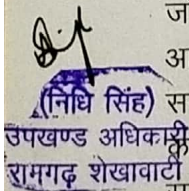 ज
अ
(निधि सिंह) स
उपखण्ड अधिकारी
रामगढ़ शेखावाटी